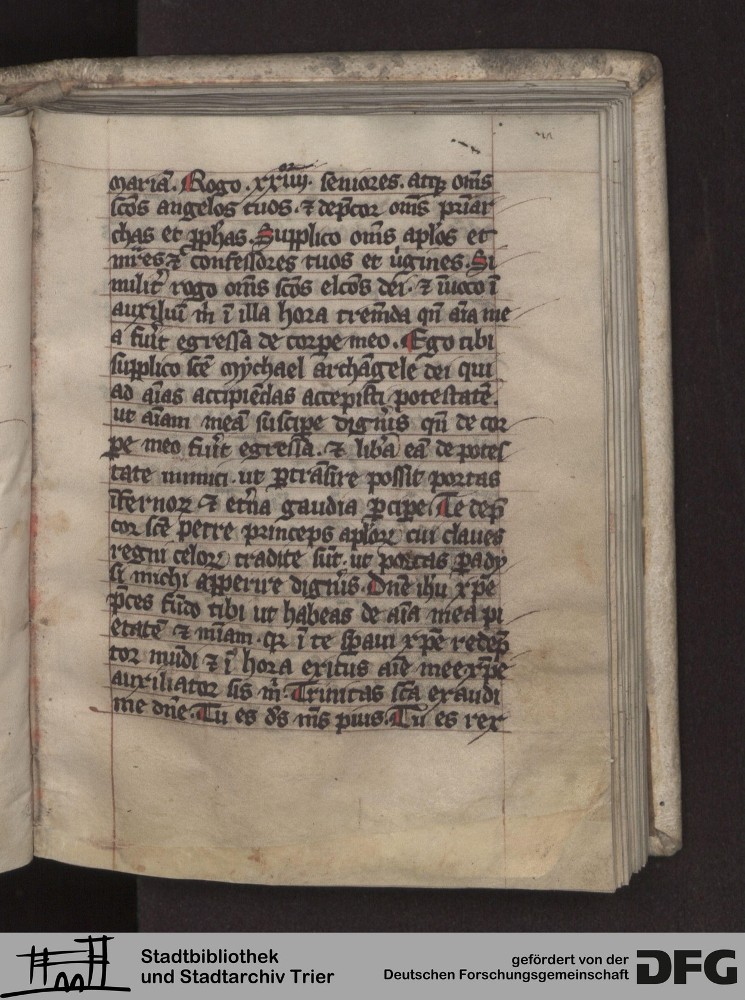 mariā. Rogo .xxiiijor. seniores. atqꝫ om̄s
sc̄os angelos tuos. ⁊ dep̄cor om̄s pͥriar
chas et ꝓph̄as. Supplico om̄s apl̄os et
mr̄es ⁊ confessores tuos et ūgines. Si
milit̄ rogo om̄s sc̄os elc̄os dei. ⁊ īuoco ī
auxiliū m̄ ī illa hora trem̄da qn̄ aīa me
a fūit egressa de corpe meo. Ego tibi
supplico sc̄e mychael archāgele dei qui
ad aīas accipiēdas accepisti potestatē.
ut aīam meā suscipe dign̄is qn̄ de cor
pe meo fūit egressa. ⁊ libͣa eā de potes
tate inimici. ut ꝑtrāsire possit portas
īfernoꝝ ⁊ et̄na gaudia ꝑcipe. Te dep̄
cor sc̄e petre princeps apl̄oꝝ cui claues
regni celoꝝ tradite sūt. ut portas ꝑady
si michi apperire dign̄is. Dn̄e ih̄u xp̄e
p̄ces fūdo tibi ut habeas de aīa mea pi
etatē ⁊ mīam. qꝛ ī te sꝑaui xp̄e redēp
tor mūdi ⁊ ī hora exitus aīe mee xp̄e
auxiliator sis m̄. Trinitas sc̄a exaudi
me dn̄e. Tu es ds̄ m̄s pius. Tu es rex
Stadtbibliothek
und Stadtarchiv Trier
gefördert von der
Deutschen Forschungsgemeinschaft
DFG